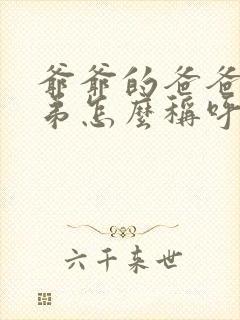 爺爺的爸爸
弟怎麼稱呼
六千來世